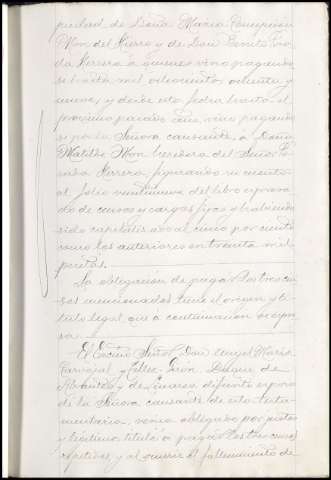 piedad de Doña María Concepción
Mon del Hierro y de Don Benito
Herrera á quienes vino pagando
se hasta mil ochocientos ochenta y
nueve, y desde esta fecha hasta el
proximo pasado año, vino pagando
se por la Señora causante, á Doña
Matilde Mon heredera del Señor
Herrera, figurando su cuenta
al folio veintinueve del libro expresa
do de censos y cargas fijas y habiendo
sido capitalizado al cinco por ciento
como los anteriores en treinta mil
pesetas.
La obligación de pagar los tres cen
sos mencionados tiene el origen y tí
tulo legal que á continuación se expre
sa
El Excmo Señor Don Angel María
Carvajal y Tellez-Girón Duque de
Abrantes y de Linares difunto esposo
de la Señora causante de esta testa
mentaría, venía obligado por justos
y legítimos titulos á pagar los tres censos
repetidos, y al ocurrir el fallecimiento de